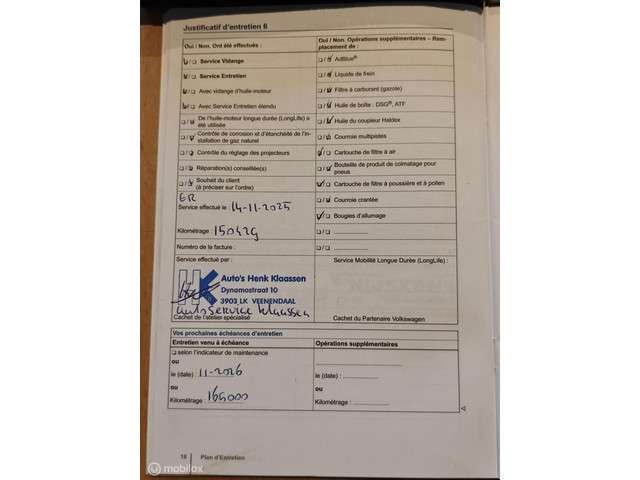 Justificatif d'entretien 6
Oui / Non. Ont été effectués :
Oui / Non. Opérations supplémentaires – Remplacement de :
☑/☐ Service Vidange
☐/☑ AdBlue®
☑/☐ Service Entretien
☐/☑ Liquide de frein
☑/☐ Avec vidange d'huile-moteur
☐/☑ Filtre à carburant (gazole)
☑/☐ Avec Service Entretien étendu
☐/☑ Huile de boîte : DSG®, ATF
☐/☑ De l'huile-moteur longue durée (LongLife) a été utilisée
☐/☑ Huile du coupleur Haldex
☐/☑ Contrôle de corrosion et d'étanchéité de l'installation de gaz naturel
☐/☑ Courroie multipistes
☑/☐ Cartouche de filtre à air
☐/☑ Contrôle du réglage des projecteurs
☐/☑ Bouteille de produit de colmatage pour pneus
☐/☑ Réparation(s) conseillée(s)
☑/☐ Cartouche de filtre à poussière et à pollen
☐/☑ Souhait du client (à préciser sur l'ordre)
☐/☑ Courroie crantée
Service effectué le : 14-11-2025
☑/☐ Bougies d'allumage
Kilométrage : 150429
☐/☐
Numéro de la facture :
☐/☐
Service effectué par :
Service Mobilité Longue Durée (LongLife) :
HK
Auto's Henk Klaassen
Dynamostraat 10
3903 LK VEENENDAAL
autoservice klaassen
Cachet de l'atelier spécialisé
Cachet du Partenaire Volkswagen
Vos prochaines échéances d'entretien
Entretien venu à échéance
Opérations supplémentaires
☐ selon l'indicateur de maintenance
ou
le (date) : 11-2026
le (date) :
ou
ou
Kilométrage : 165000
Kilométrage :
18 Plan d'Entretien
mobilox